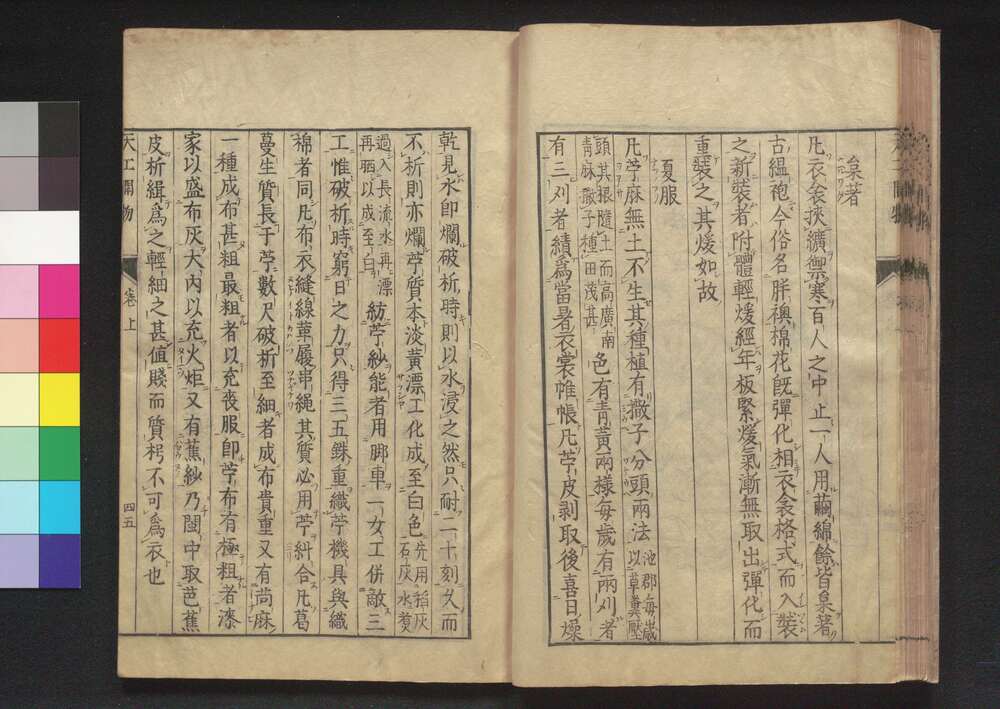 枲著
凡衣衾挾纊禦寒百人之中止一人用繭綿餘皆枲著
古縕袍今俗名胖襖棉花既彈化相衣衾格式而入裝
之新裝者附體輕煖經年板緊煖氣漸無取出彈化而
重裝之其煖如故
夏服
凡苧麻無土不生其種植有撒子分頭兩法池郡每歲以草糞壓
頭其根隨土而高廣南青麻撒子種田茂甚色有靑黃兩樣每歲有兩刈者
有三刈者績爲當暑衣裳帷帳凡苧皮剥取後喜日燥
乾見水卽爛破析時則以水浸之然只耐二十刻久而
不析則亦爛苧質本淡黃漂工化成至白色先用稻灰石灰水煑
過入長流水再漂再晒以成至白紡苧紗能者用脚車一女工併敵三
工惟破析時窮日之力只得三五銖重織苧機具與織
棉者同凡布衣縫線革履串繩其質必用苧糾合凡葛
蔓生質長于苧數尺破析至細者成布貴重又有苘麻
一種成布甚粗最粗者以充喪服卽苧布有極粗者漆
家以盛布灰大内以充火炬又有蕉紗乃閩中取芭蕉
皮析緝爲之輕細之甚値賤而質枵不可爲衣也
天工開物
卷上
四五